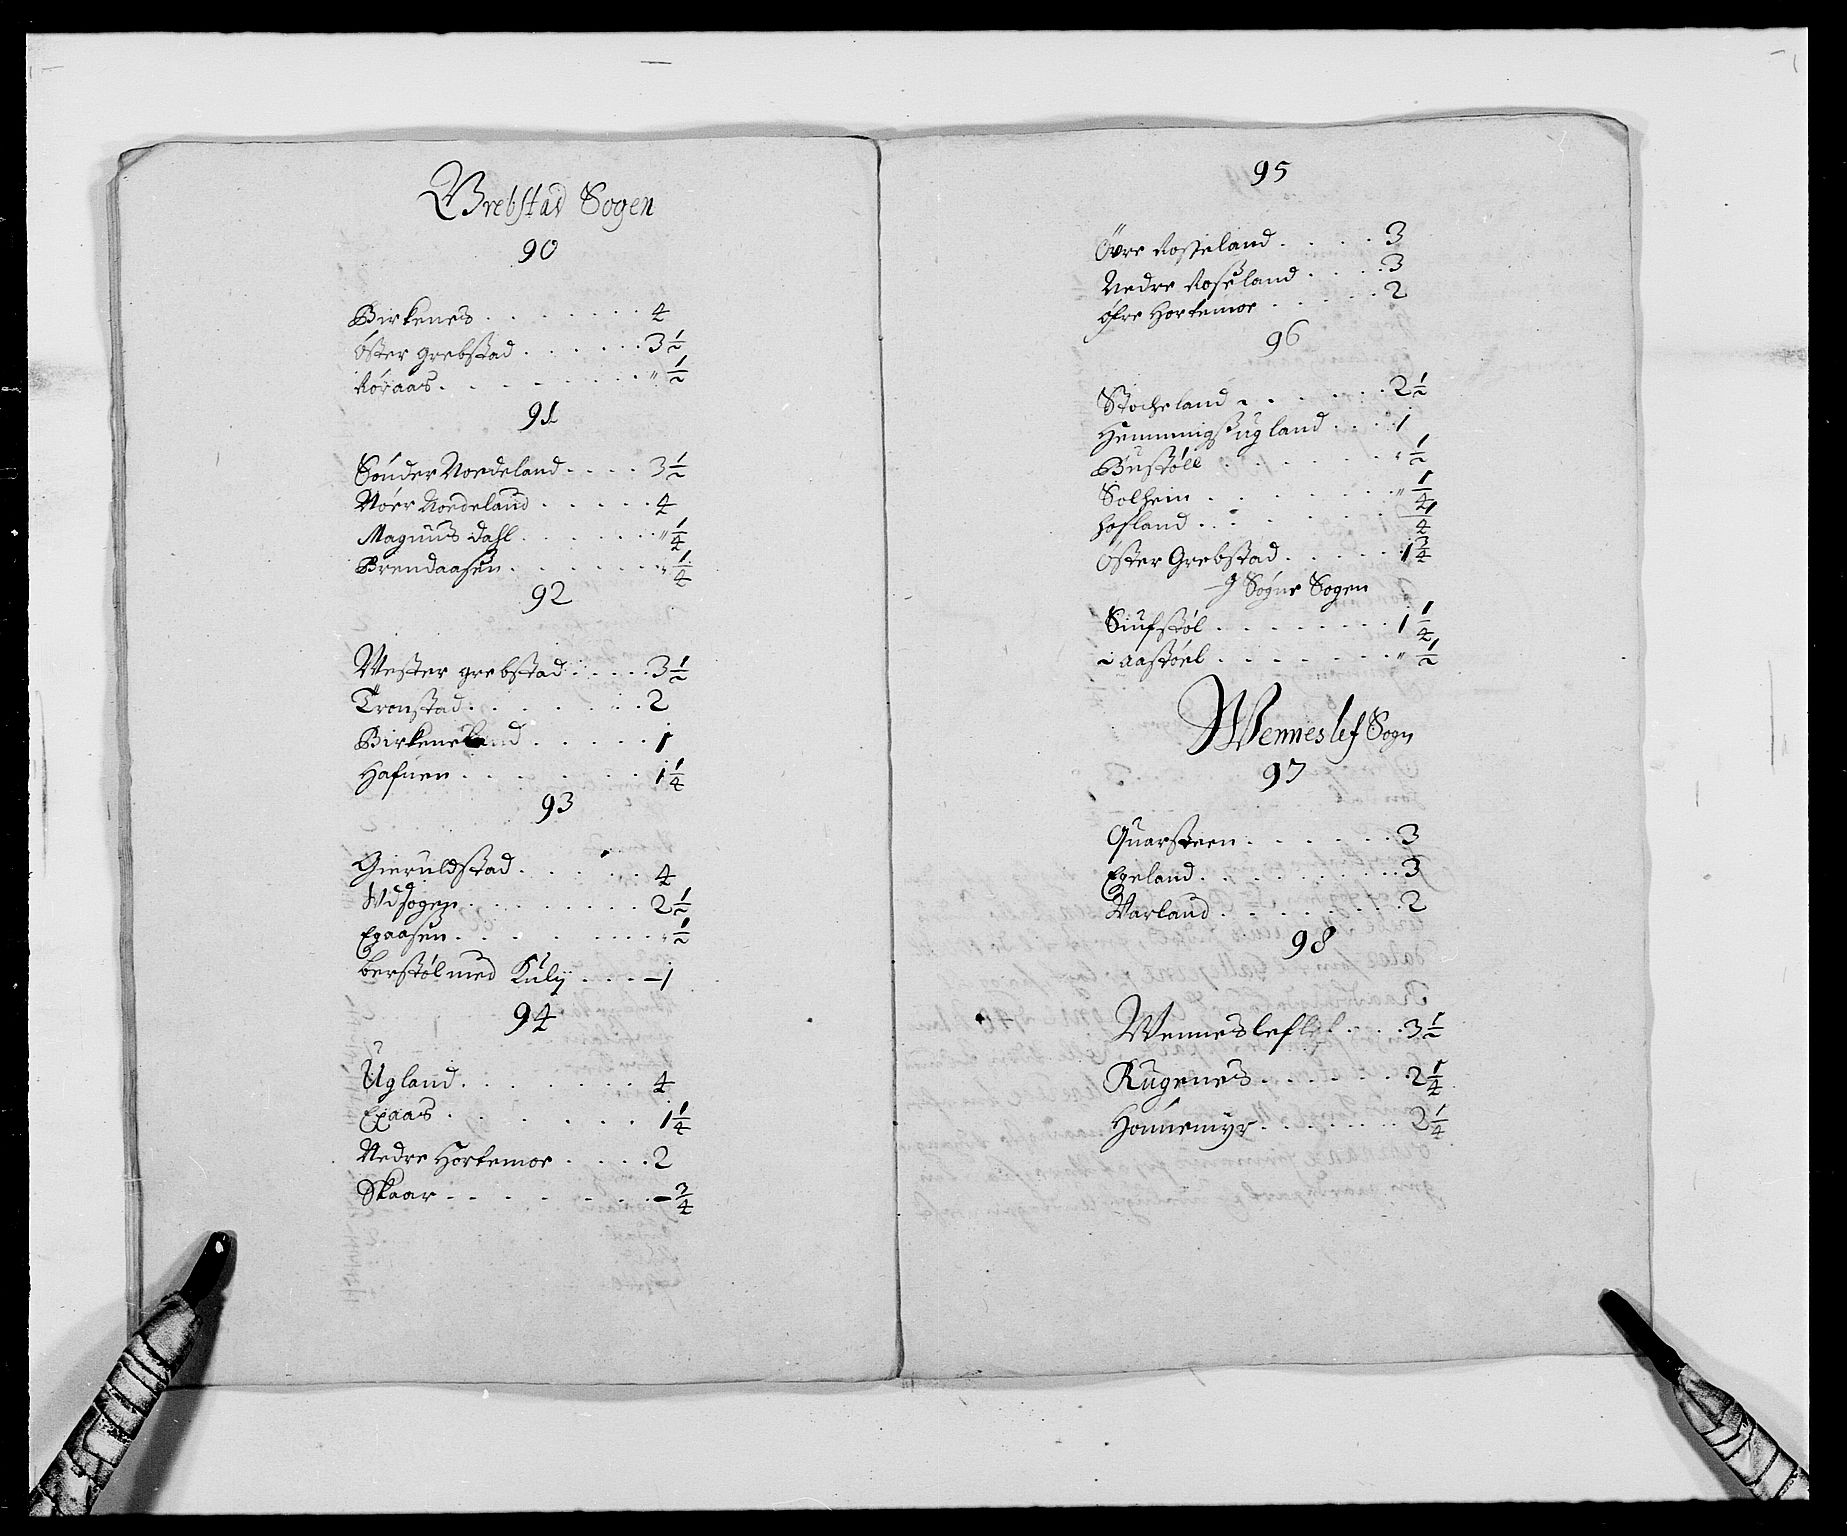 Grebstad Sogen
90
Birkenes . . . . . . . 4
Öster grebstad . . . . . 3 1/2
Röraas . . . . . . . . " 1/2
91
Sönder Noedeland . . . . 3 1/2
Nöer Noedeland . . . . . 4
Magnus dahl . . . . . . " 1/4
Brendaasen . . . . . . . " 1/4
92
Wester grebstad . . . . 3 1/2
Tronstad . . . . . . . 2
Birkeneland . . . . . 1
Hafnen . . . . . . . 1 1/4
93
Gieruldstad . . . . . 4
Widsogen . . . . . . . . 2 1/2
Egaasen . . . . . . . . " 1/2
berstöl med Kuly . . . - 1
94
Ugland . . . . . . . 4
Egaas . . . . . . 1 1/4
Nedre Hortemoe . . . . 2
Skaar . . . . . . . . - 3/4
95
Övre Rosseland . . . . 3
Nedre Rosseland . . . . 3
öfre Hortemoe . . . . . 2
96
Stocheland . . . . . . 2 1/2
Hemmingsugland . . . . 1
Bustöll . . . . . . . " 1/2
Solhein . . . . . . . " 1/4
höfland . . . . . . . 1/4
Öster Grebstad . . . . . 1 3/4
J Sögne Sogen
Siufstöl . . . . . . . . 1 1/4
Aastöel . . . . . . . " 1/2
Wenneslef Sogn
97
Quarsteen . . . . . . 3
Egeland . . . . . . . . 3
Varland . . . . . . . . 2
98
Wenneslef . . . . 3 1/2
Rugenes . . . . . . 2 1/4
Honnemyr . . . . . . . 2 1/4